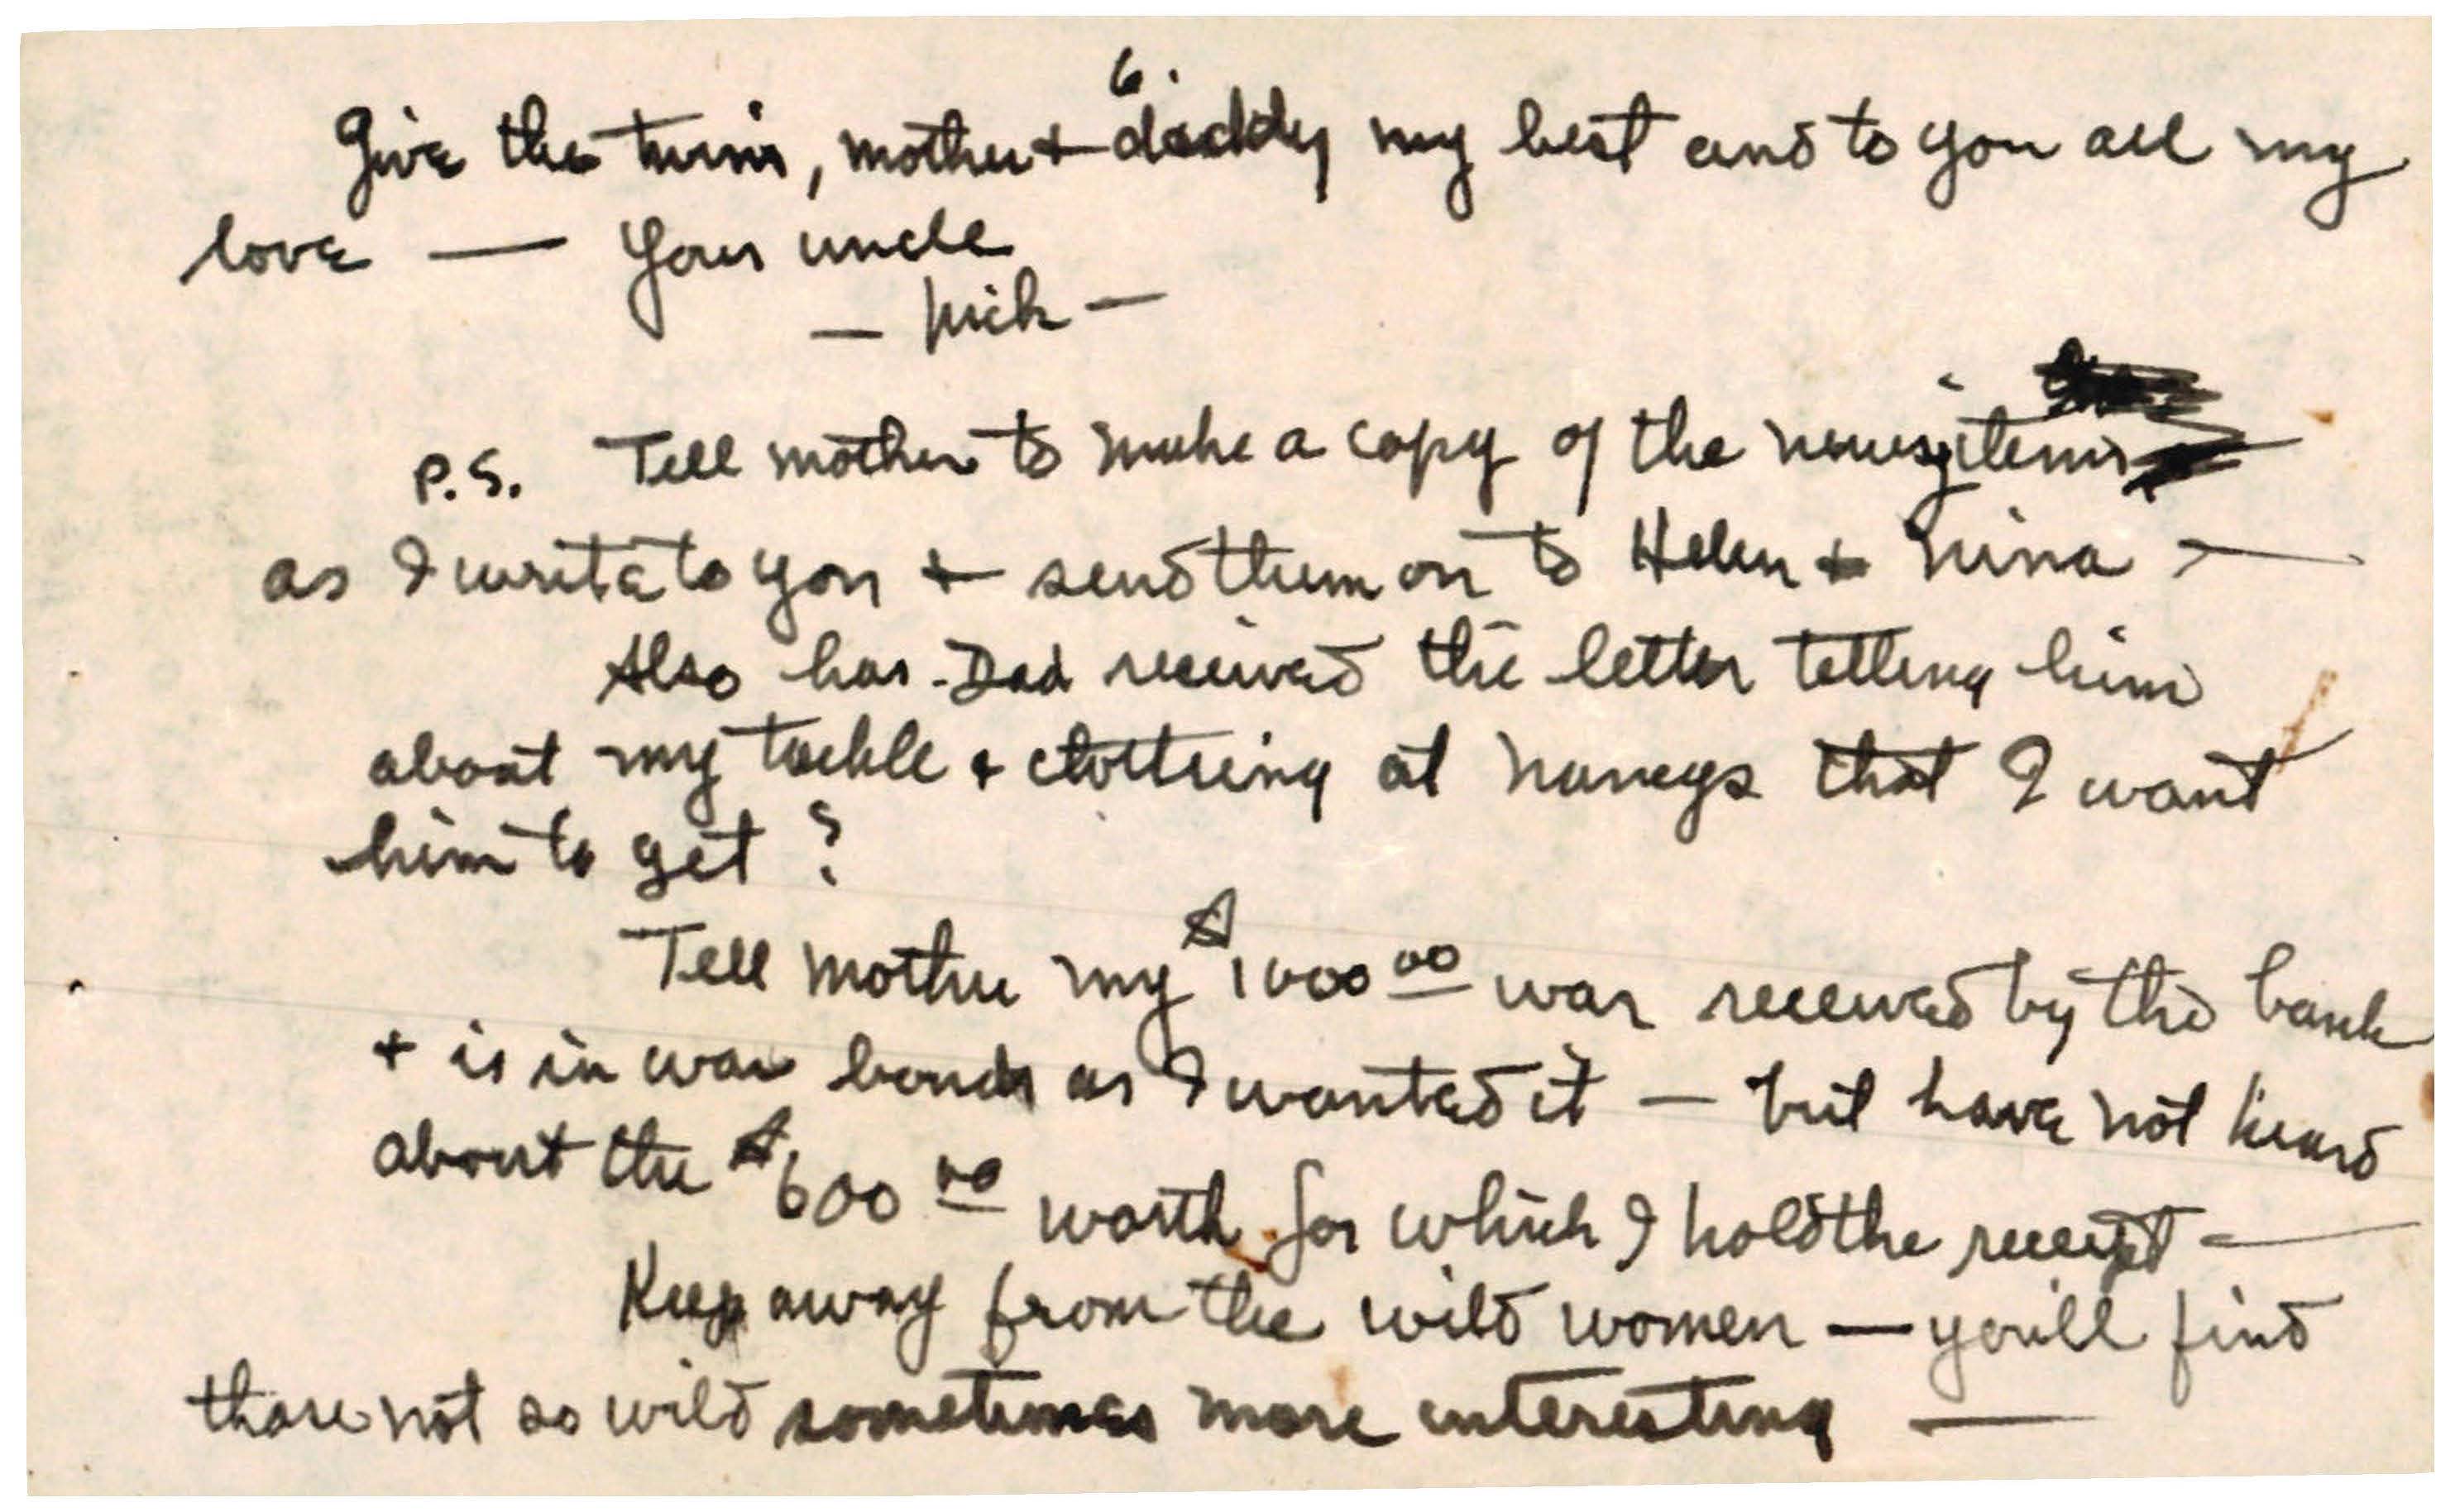 6.
Give the twins, mother + daddy my best and to you all my
love — Your uncle
— Nick —
P.S. Tell mother to make a copy of the newsy items
as I write to you + send them on to Helen + Nina —
Also has Dad received the letter telling him
about my tackle + clothing at Nancys that I want
him to get?
Tell mother my $1000 00 was received by the bank
+ is in war bonds as I wanted it — but have not heard
about the $600 00 worth for which I hold the receipt —
Keep away from the wild women — you'll find
those not so wild sometimes more interesting —